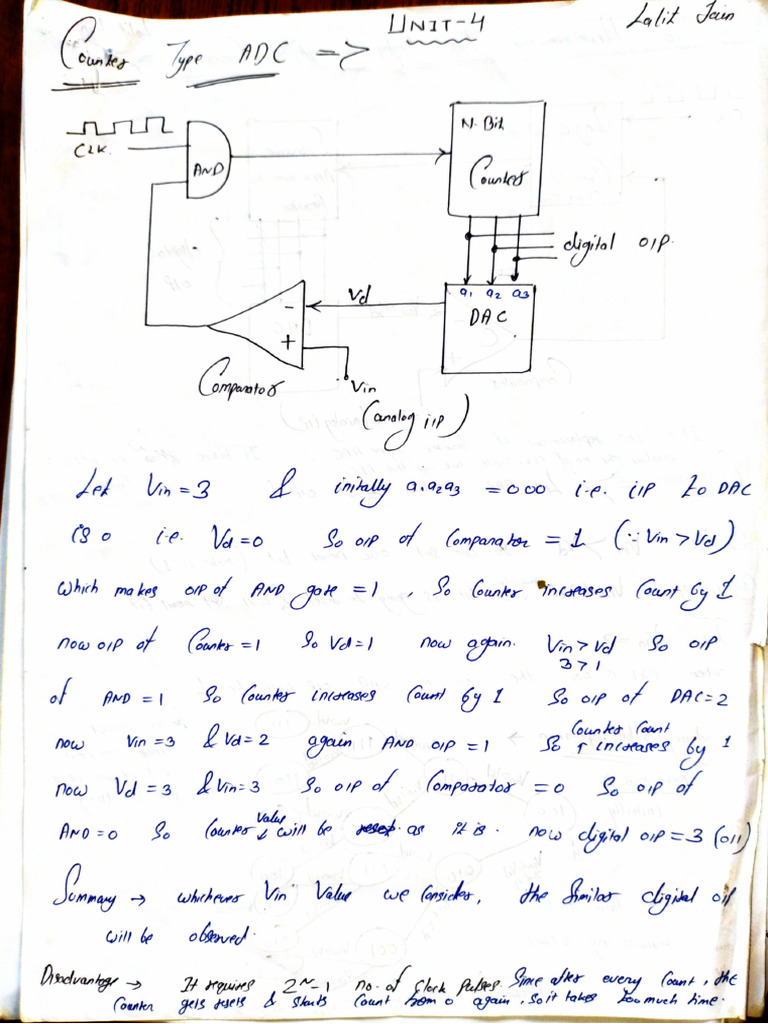 UNIT-4
Lalit Jain
Counter Type ADC =>
CLK.
AND
N-Bit
Counter
digital O/P.
a1 a2 a3
DAC
Vd
-
+
Comparator
Vin
(analog i/p)
Let Vin = 3 & initially a1a2a3 = 000 i.e. i/p to DAC
is 0 i.e. Vd = 0 So o/p of Comparator = 1 (∵ Vin > Vd)
which makes o/p of AND gate = 1, So Counter increases Count by 1
now o/p of Counter = 1 So Vd = 1 now again. Vin > Vd So o/p
3 > 1
of AND = 1 So Counter increases Count by 1 So o/p of DAC = 2
now Vin = 3 & Vd = 2 again AND o/p = 1 So Counter Count ↑ increases by 1
now Vd = 3 & Vin = 3 So o/p of Comparator = 0 So o/p of
AND = 0 So Counter value will be as it is. now digital o/p = 3 (011)
Summary → whichever Vin Value we Consider, the Similar digital o/p
will be observed.
Disadvantage → It requires 2^N-1 no. of Clock Pulses. Since after every Count, the
Counter gets resets & starts Count from 0 again, so it takes too much time.